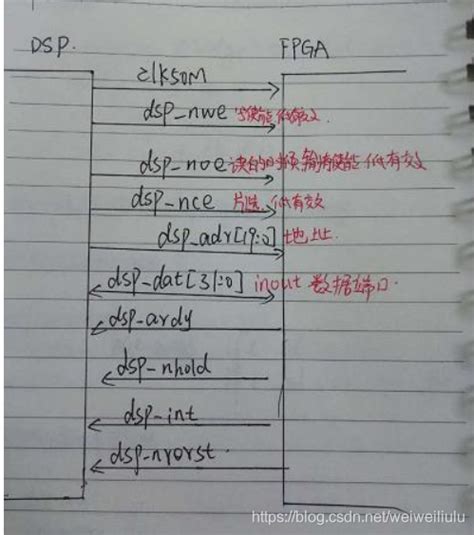 DSP. FPGA
clk50M
dsp_nwe 写使能 低有效.
dsp_noe 读的时候 输出使能 低有效
dsp_nce 片选. 低有效
dsp_adr[19:0] 地址.
dsp_dat[31:0] inout 数据端口.
dsp_ardy
dsp_nhold
dsp_int
dsp_nrorst.
https://blog.csdn.net/weiweiliulu